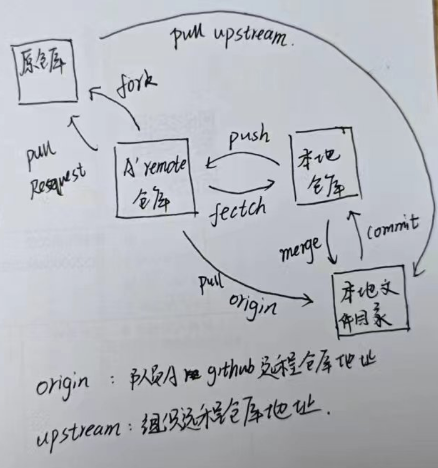 pull upstream.
原仓库
fork
pull
Resquest
A' remote
仓库
push
fectch
本地
仓库
merge
commit
pull
origin
本地文
件目录
origin : 队员A github远程仓库地址
upstream : 组织远程仓库地址.